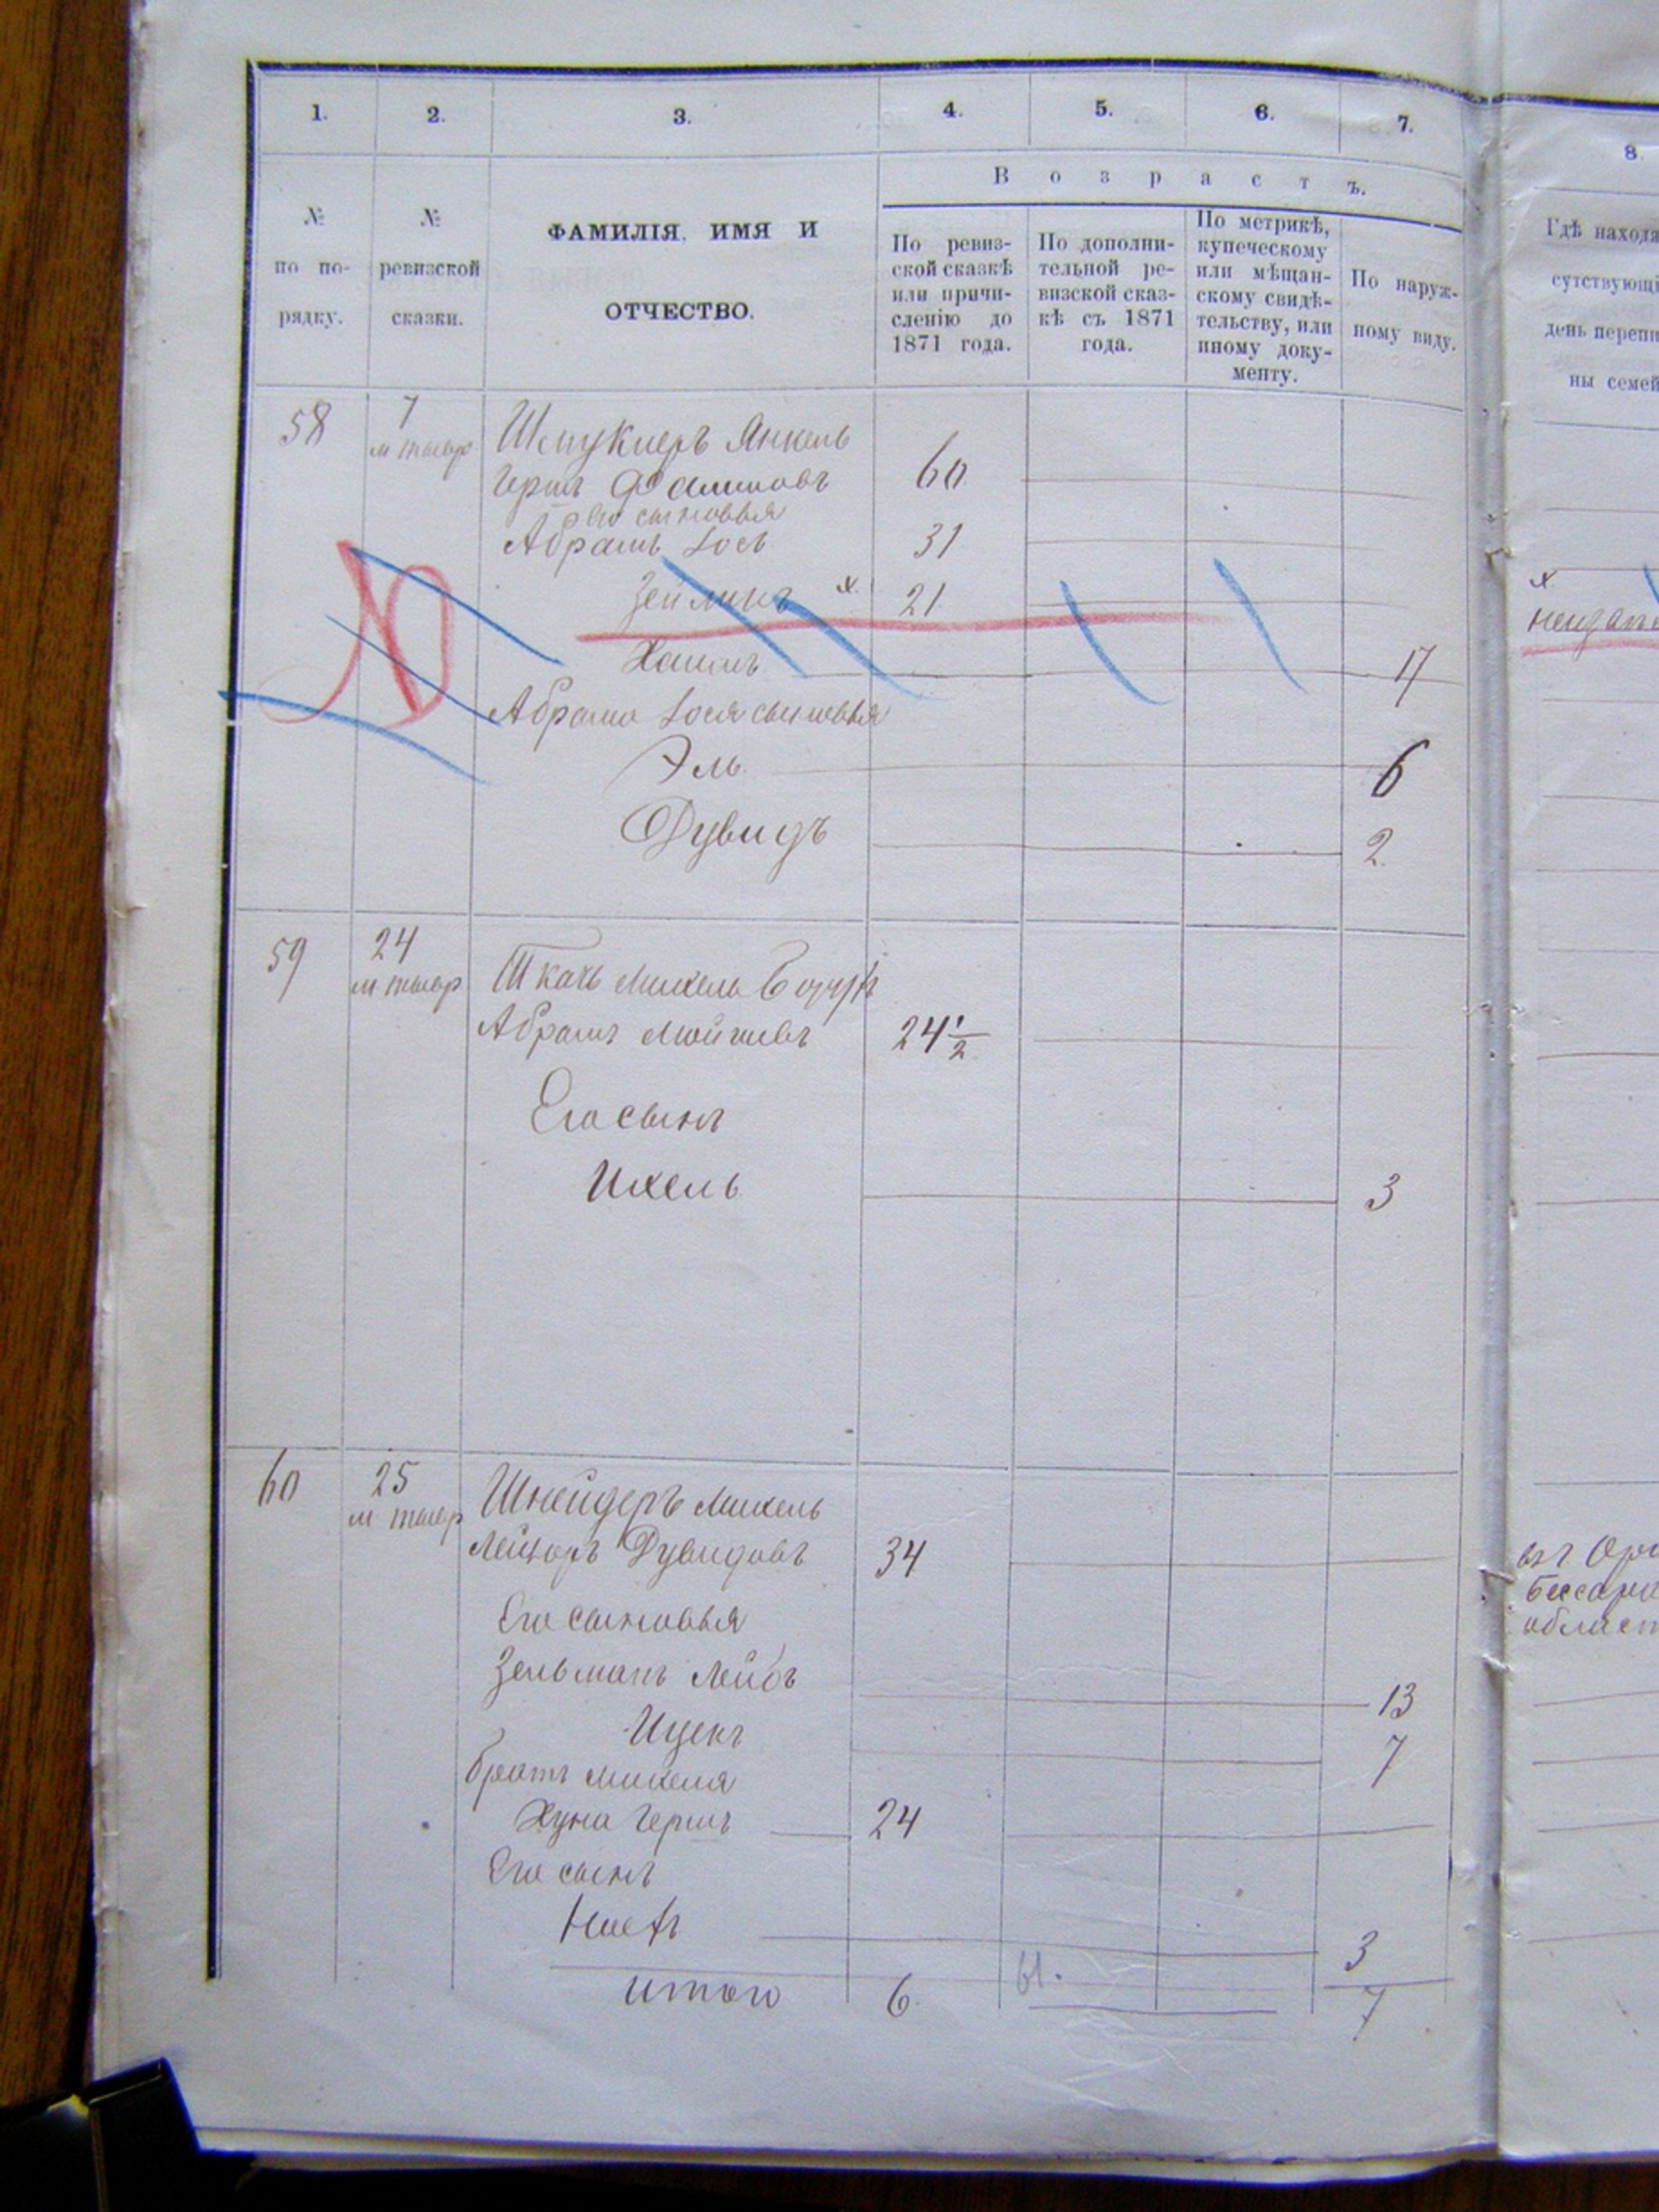 1. 2. 3. 4. 5. 6. 7.
8.
Возрастъ.
№ по по-
рядку.
№
ревизской
сказки.
ФАМИЛІЯ, ИМЯ И
ОТЧЕСТВО.
По ревиз-
ской сказкѣ
или причи-
сленію до
1871 года.
По дополни-
тельной ре-
визской сказ-
кѣ съ 1871
года.
По метрикѣ,
купеческому
или мѣщан-
скому свидѣ-
тельству, или
иному доку-
менту.
По наруж-
ному виду.
Гдѣ находя
сутствующі
день перепи
ны семей
58 7 Шмуклеръ Янкель
Герш 60
его сыновья
Абрамъ Іось 31
Зейликъ х 21
х
Хаимъ 17
Абрама Іося сыновья
Эль 6
Дувидъ 2
59 24 Ткачъ Михель
Абрамъ 24 1/2
Его сынъ
Ихель 3
60 25 Шнейдеръ Михель
Лейзоръ Дувидовъ 34
Его сыновья
Зельманъ Лейбъ 13
Ицекъ 7
братъ Михеля
Хуна Гершъ 24
Его сынъ
3
Итого 6. 61. 7